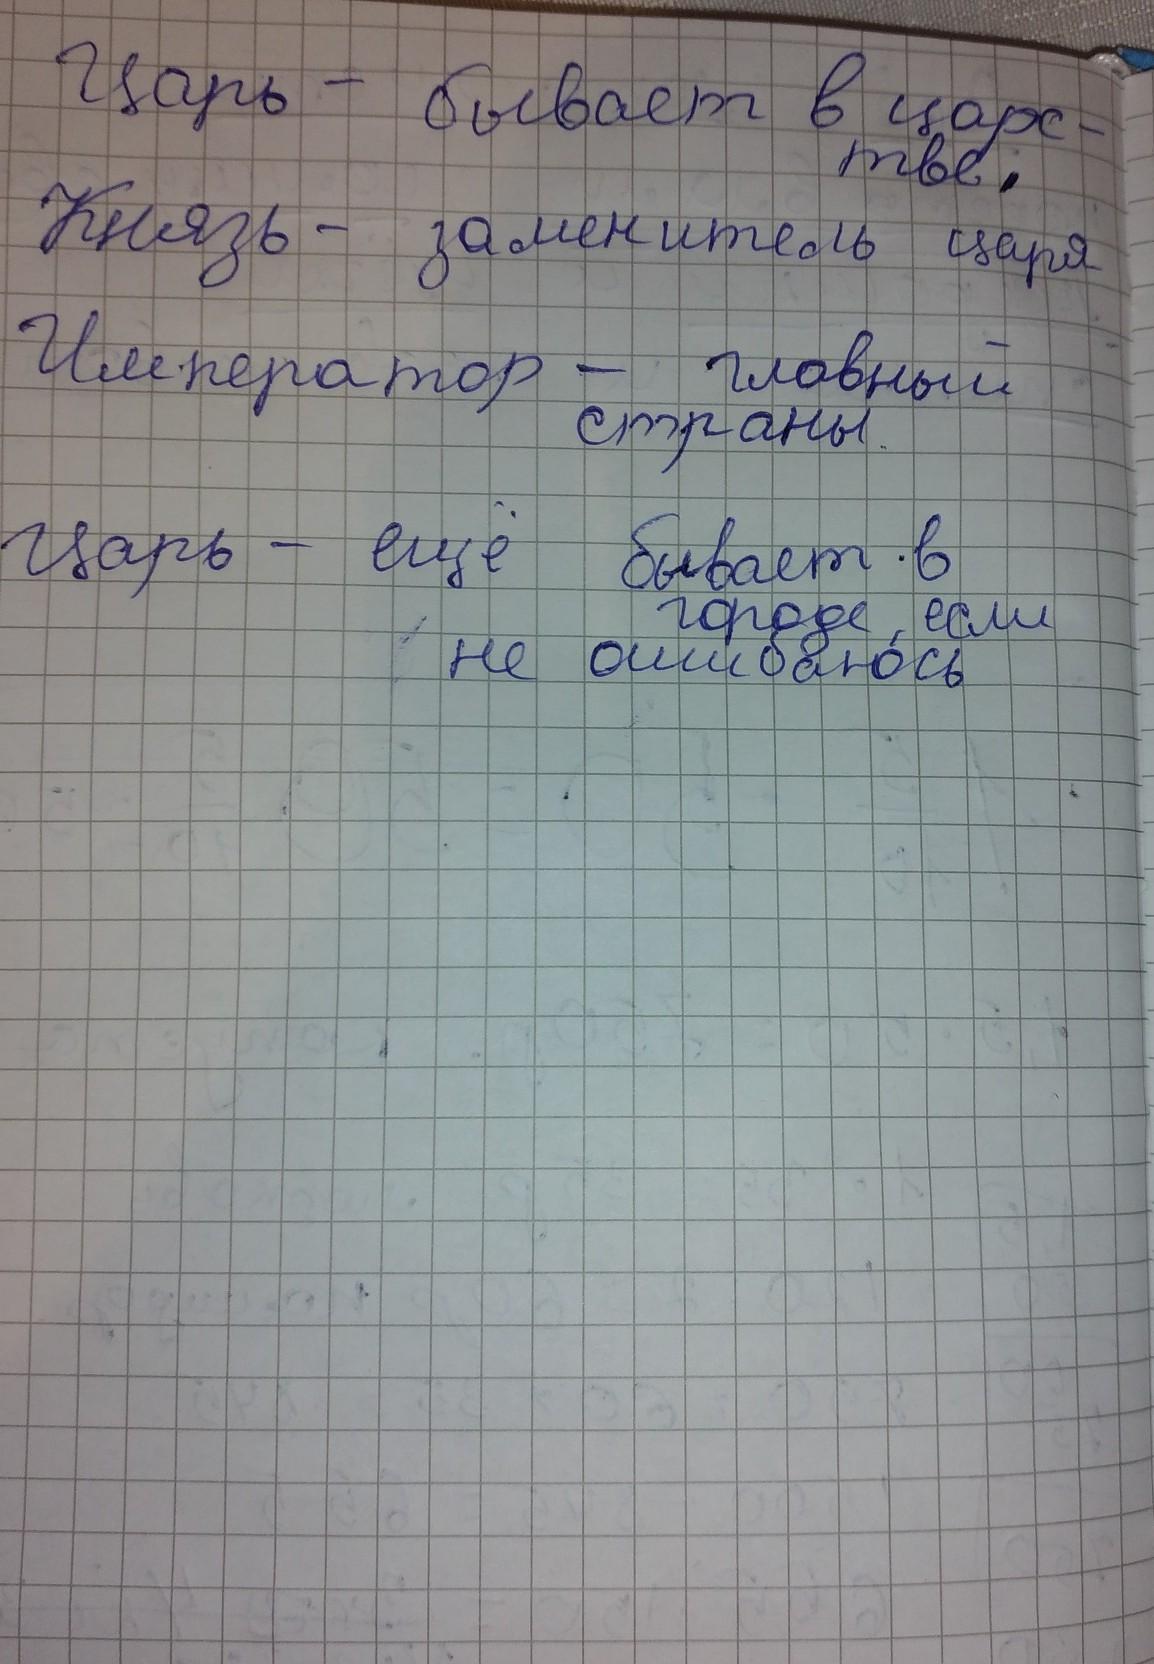 Царь - бывает в царс-
тве.
Князь - заменитель царя
Император - главный
страны.
Царь - ещё бывает в
городе, если
не ошибаюсь